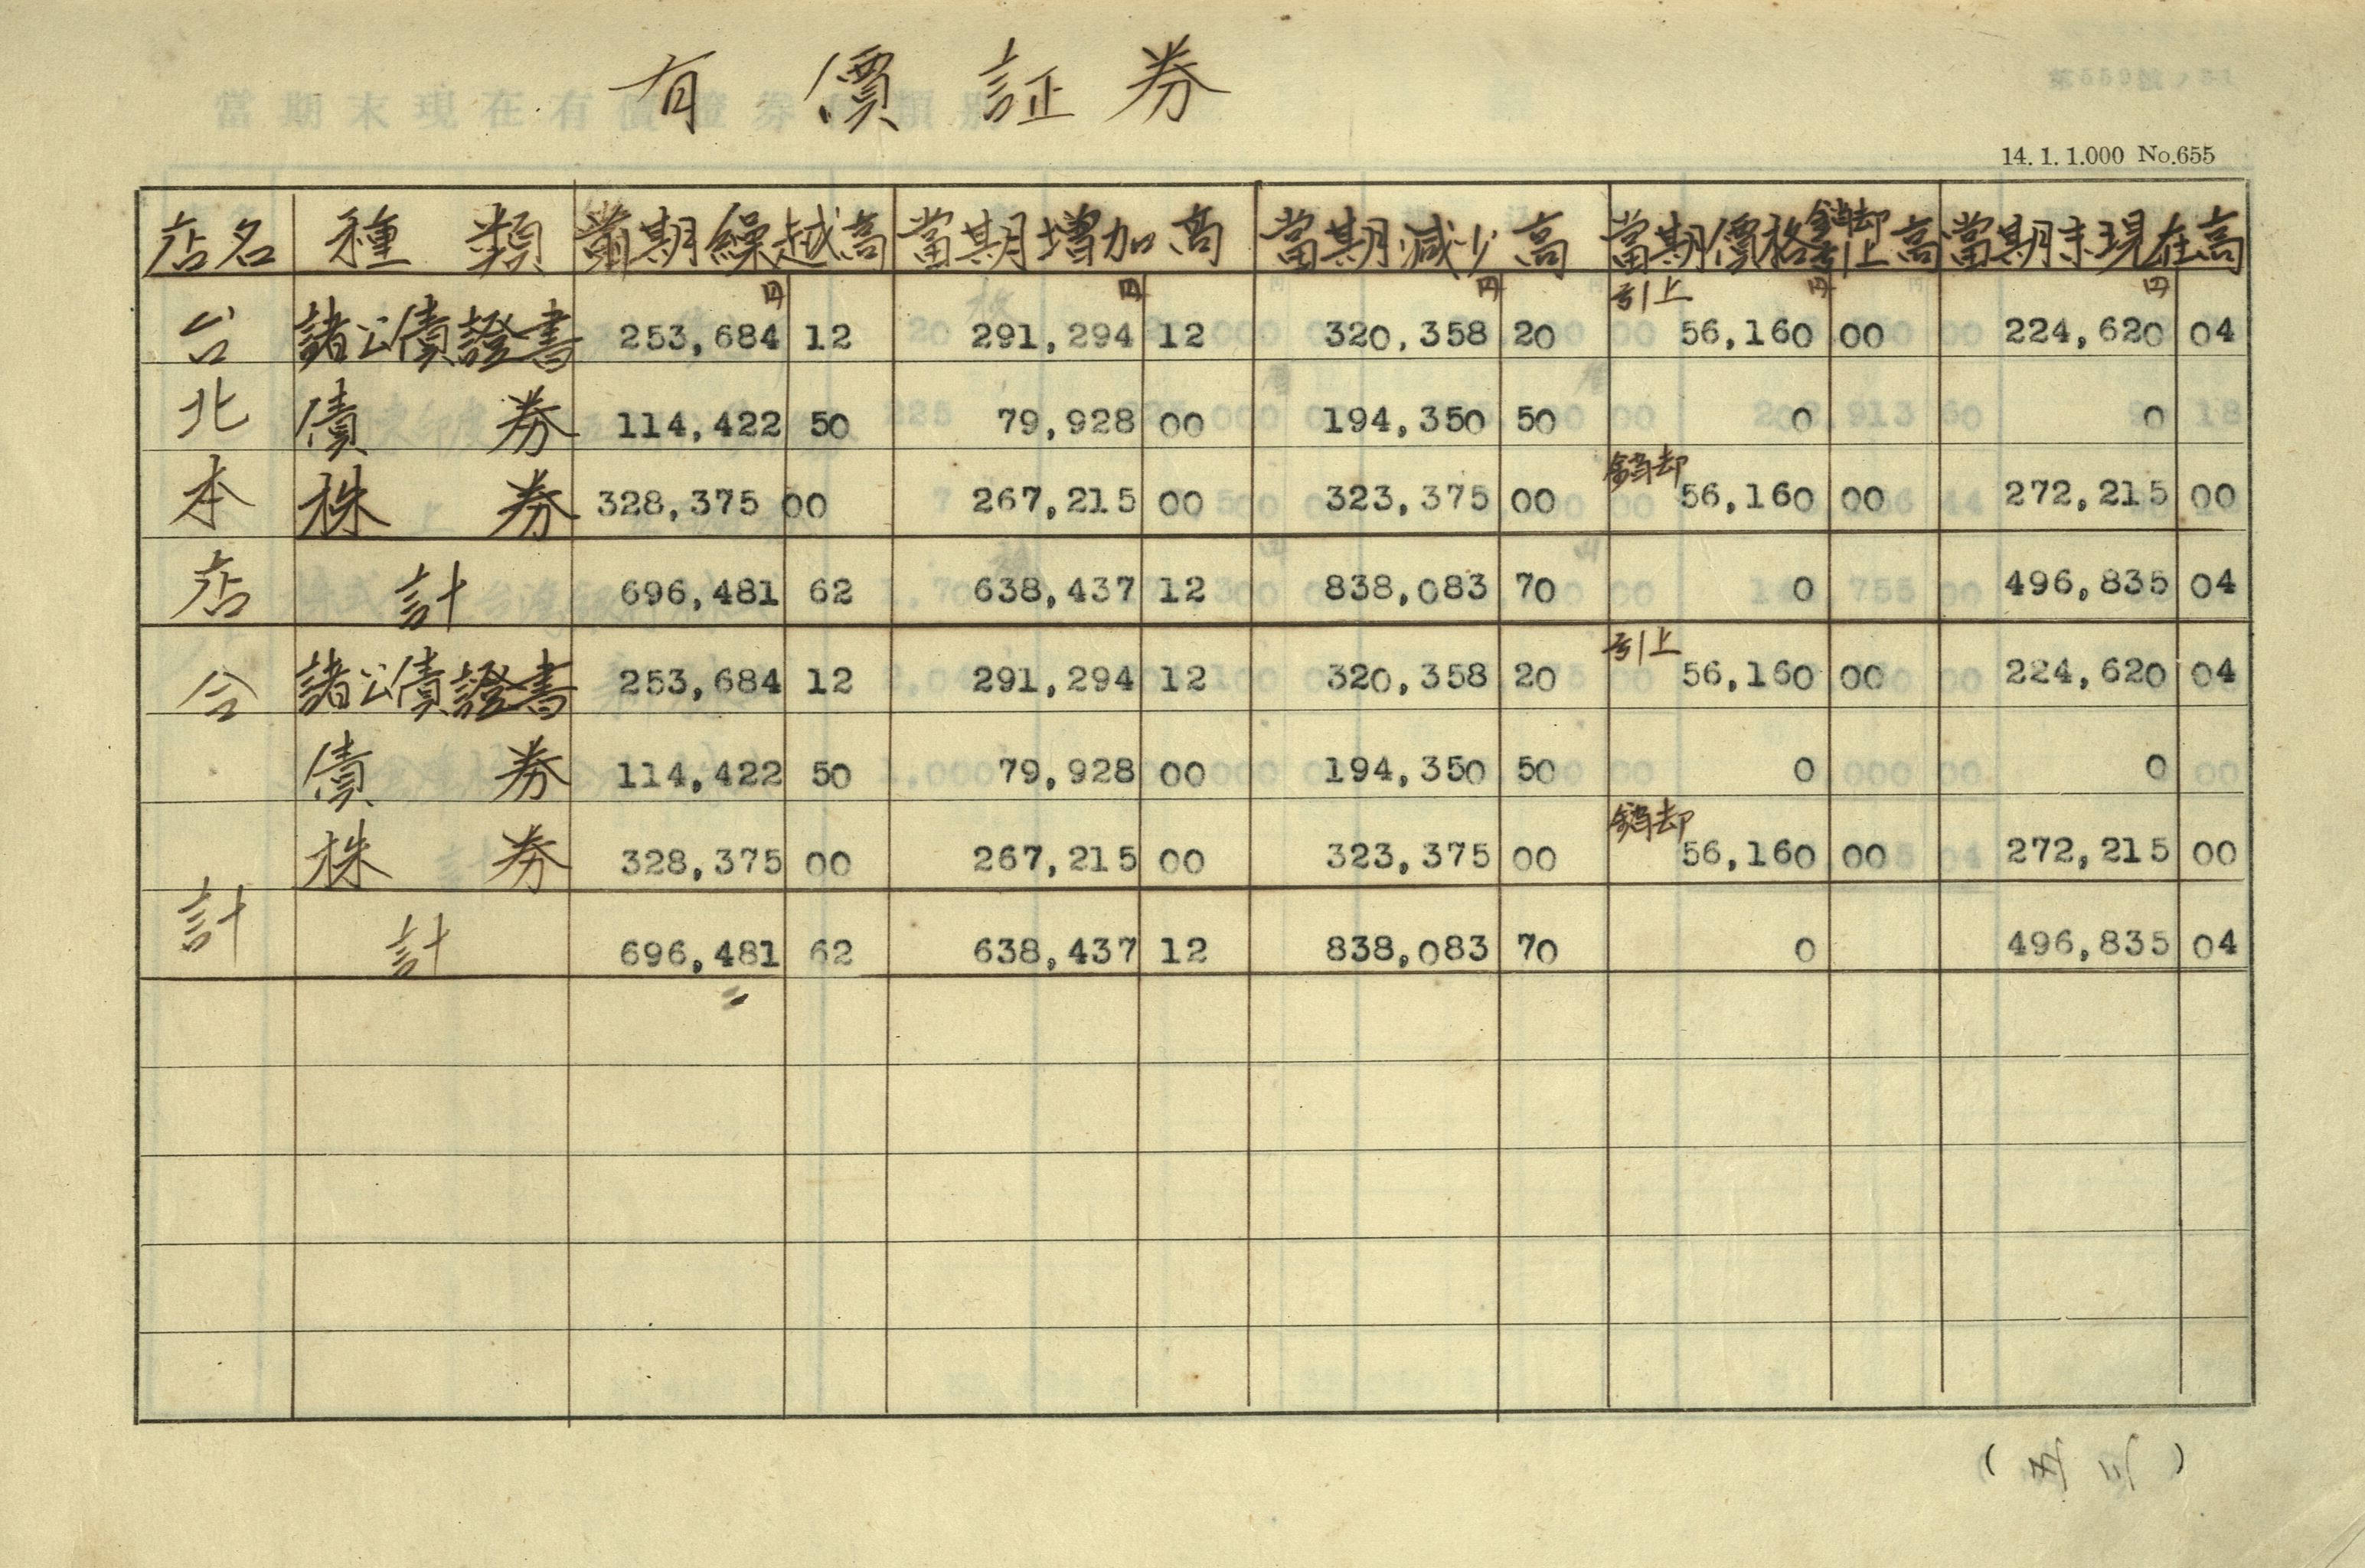 有價証券
14. 1. 1.000 No.655
店名 種類 前期繰越高 當期增加高 當期減少高 當期價格銷却引上高 當期末現在高
円 円 円 円 円
台 諸公債證書 253,684 12 291,294 12 320,358 20 引上 56,160 00 224,620 04
北 債券 114,422 50 79,928 00 194,350 50 0 0
本 株券 328,375 00 267,215 00 323,375 00 銷却 56,160 00 272,215 00
店 計 696,481 62 638,437 12 838,083 70 0 496,835 04
合 諸公債證書 253,684 12 291,294 12 320,358 20 引上 56,160 00 224,620 04
債券 114,422 50 79,928 00 194,350 50 0 0
株券 328,375 00 267,215 00 323,375 00 銷却 56,160 00 272,215 00
計 計 696,481 62 638,437 12 838,083 70 0 496,835 04